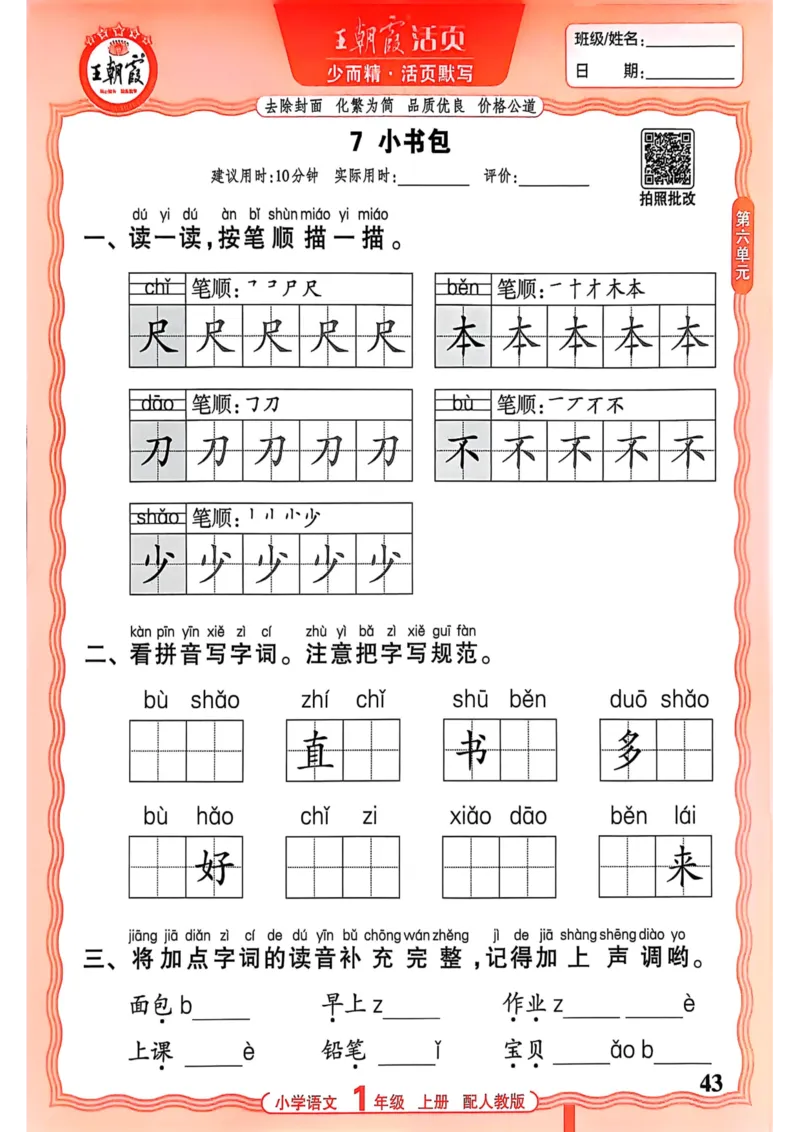 王朝霞
王朝霞®活页
少而精·活页默写
班级/姓名:
日 期:
去除封面 化繁为简 品质优良 价格公道
7 小书包
建议用时:10分钟 实际用时:________ 评价:________
拍照批改
第六单元
dú yi dú àn bǐ shùn miáo yi miáo
一、读一读,按笔顺描一描。
chǐ 笔顺:㇕コ尸尺
尺尺尺尺尺
běn 笔顺:一十才木本
本本本本本
dāo 笔顺:㇆刀
刀刀刀刀刀
bù 笔顺:一丆不不
不不不不不
shǎo 笔顺:小少
少少少少少
kàn pīn yīn xiě zì cí zhù yì bǎ zì xiě guī fàn
二、看拼音写字词。注意把字写规范。
bù shǎo zhí chǐ shū běn duō shǎo
直 书 多
bù hǎo chǐ zi xiǎo dāo běn lái
好 来
jiāng jiā diǎn zì cí de dú yīn bǔ chōng wán zhěng jì de jiā shàng shēng diào yo
三、将加点字词的读音补充完整,记得加上声调哟。
面包 b_____ 早上 z_____ 作业 z_____ _____è
上课 _____è 铅笔 _____ǐ 宝贝 _____ǎo b_____
43
小学语文 1年级 上册 配人教版